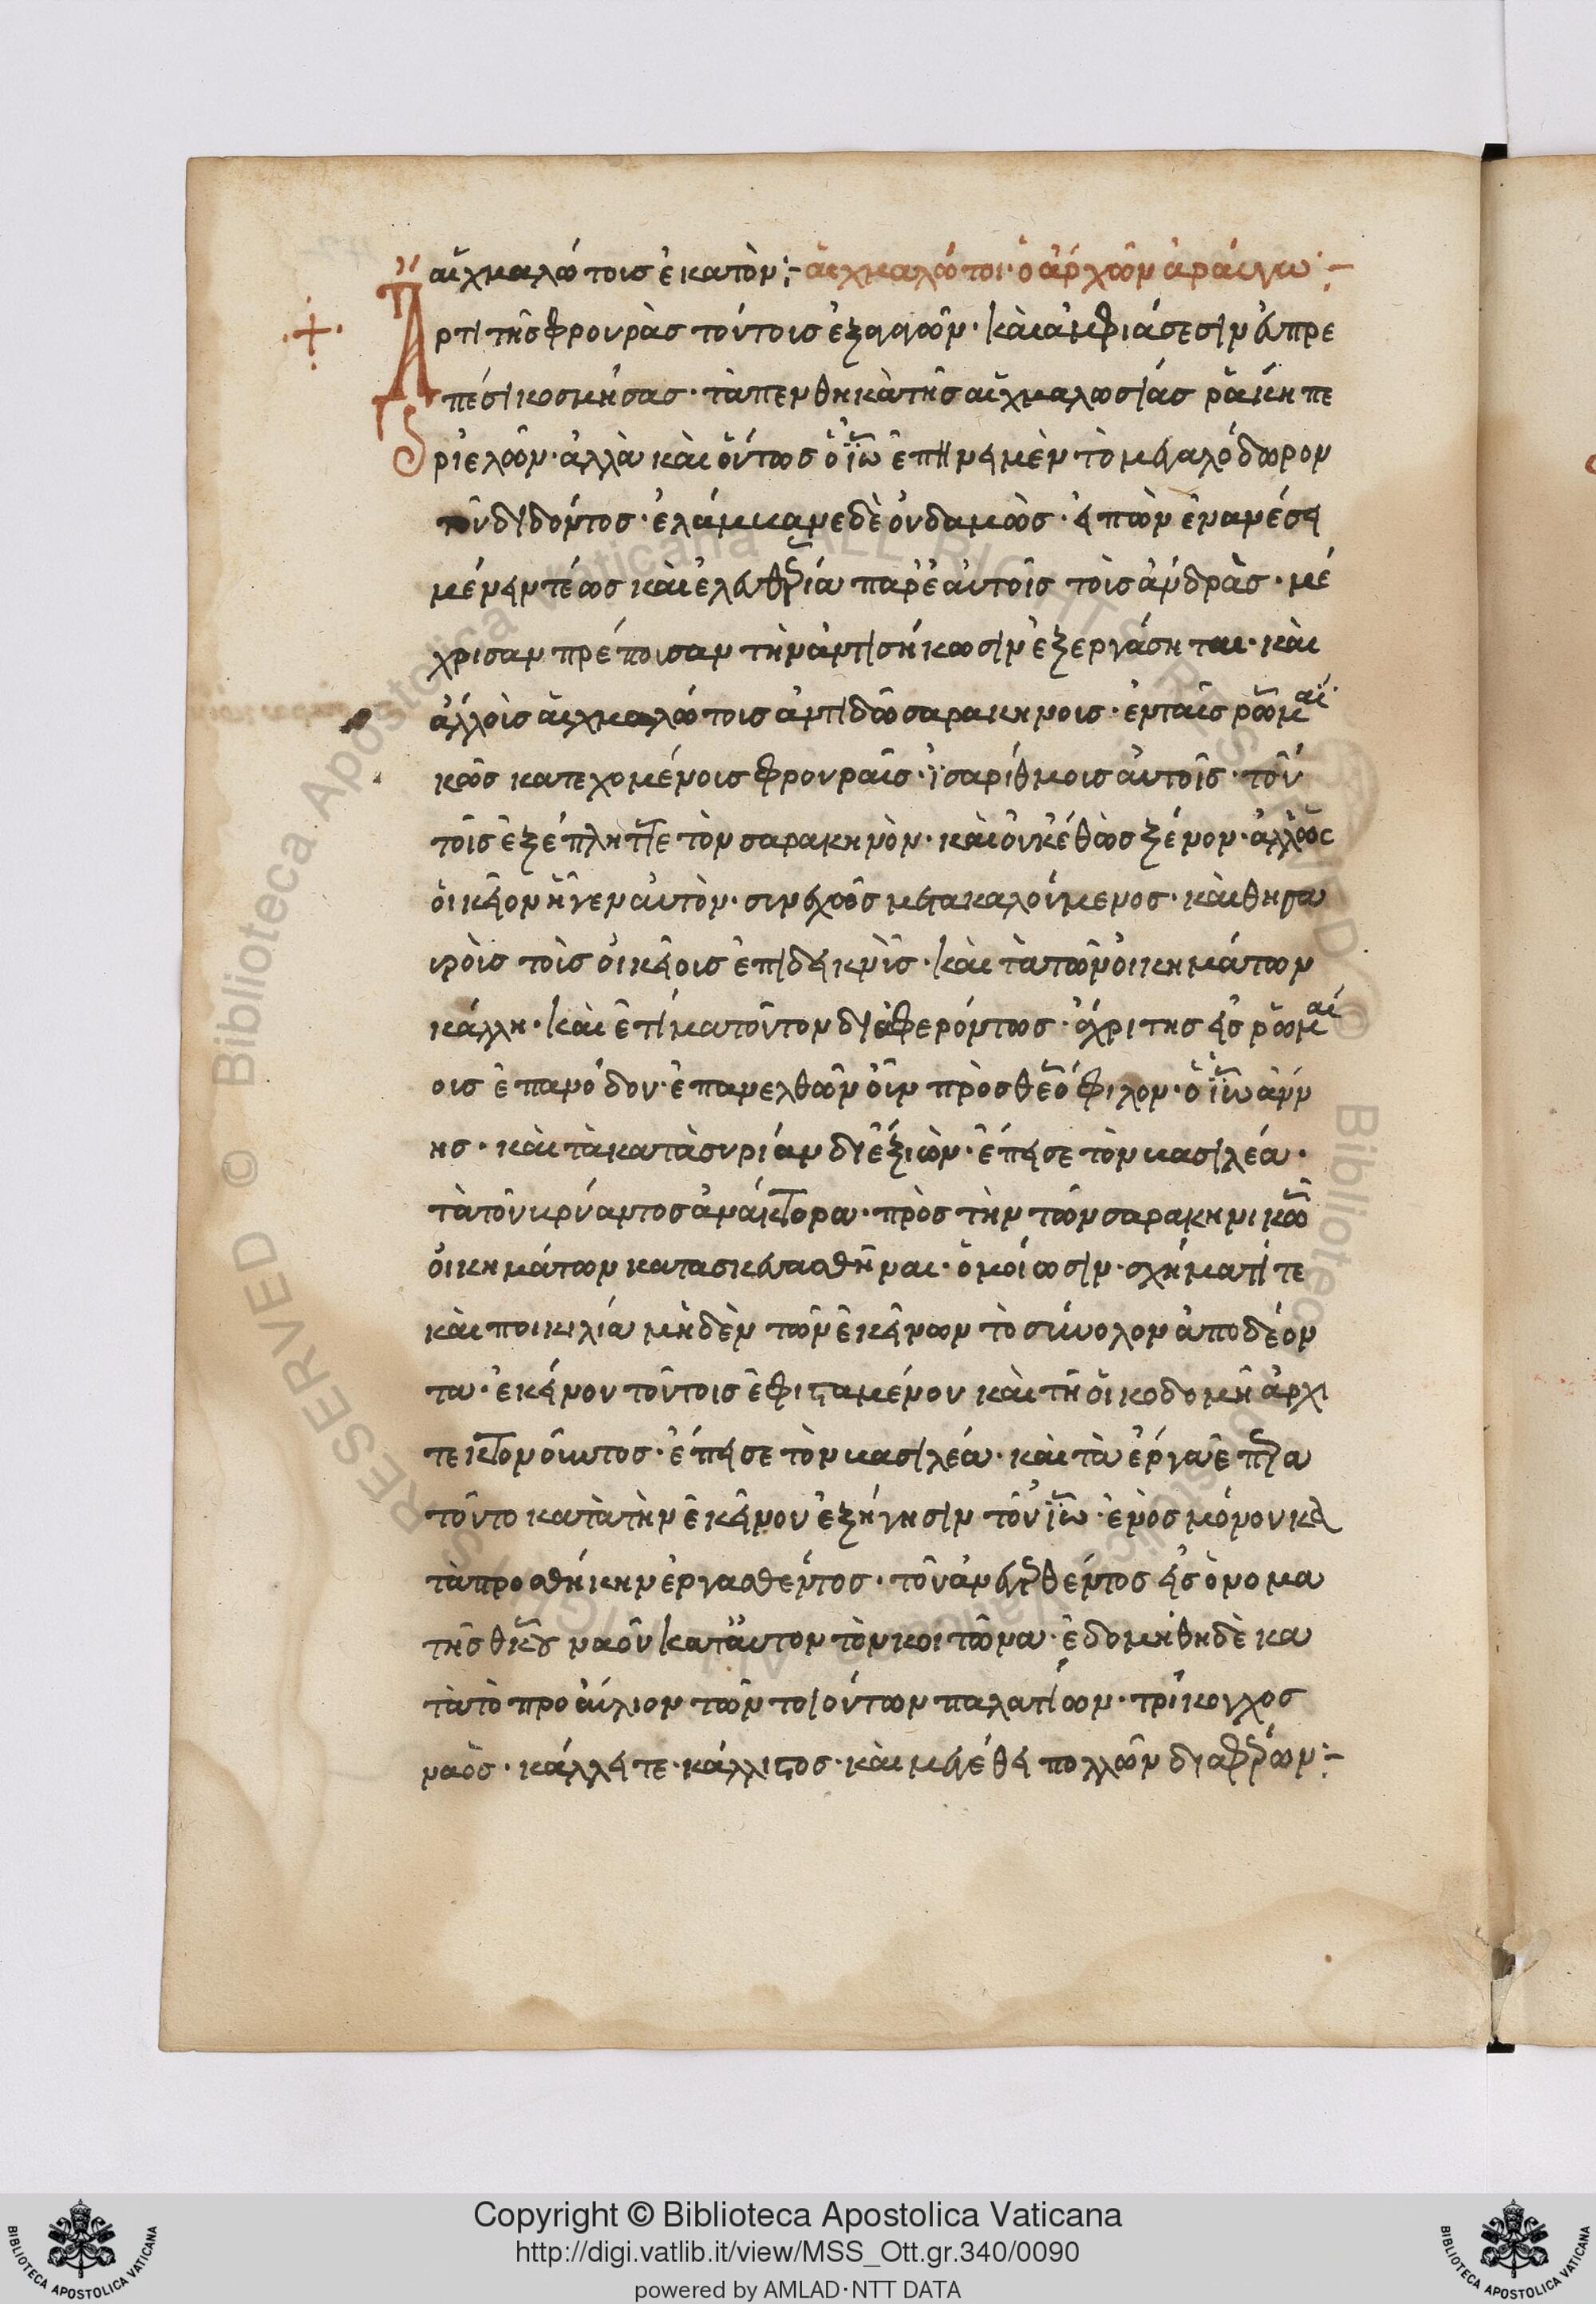 αἰχμαλώτοισ ἑκατὸν :- αἰχμαλώτοι· ὁ ἄρχων ἀράβων :-
Ἄρτι τῆσ φρουρὰσ τούτοισ ἐξαγαγῶν· καὶ ἀμφιάσεσιν εὐπρε
πέσι κοσμήσασ· τὰ πενθηκὰ τῆσ αἰχμαλωσίάσ ῥάκη πε
ριελῶν· ἀλλὰ καὶ οὕτωσ ὁ ἰω ἐπήνει μὲν τὸ μεγαλόδωρον
τοῦ διδόντοσ· ἐλάμβανε δὲ οὐδαμῶσ· εἰπῶν ἐναμέσει
μένειν τέωσ καὶ ἐλευθερία παρ' ἑαυτοῖσ τοῖσ ἀνδρὰσ· μέ
χρισ ἂν πρέποισαν τὴν ἀντισήκωσιν ἐξεργάσηται· καὶ
ἀλλοὶσ αἰχμαλώτοισ ἀντιδῶ σαρακηνοισ· ἐν ταῖσ ῥωμαϊ
κῶσ κατεχομένοισ φρουραῖσ· ἰσαρίθμοισ αὐτοῖσ· τοῦ
τοῖσ ἐξέπληττε τὸν σαρακηνὸν· καὶ οὐκέθ' ὡσ ξένον· ἀλλ' ὡσ
οἰκεῖον ἦγεν αὐτὸν· συνεχῶσ μετακαλούμενοσ· καὶ θησαυ
ροὶσ τοὶσ οἰκείοισ ἐπιδεικνὶσ· καὶ τὰ τῶν οἰκημάτων
κάλλη· καὶ ἐτίμα τοῦτον διαφερόντωσ· ἄχρι τησ εἰσ ῥωμαί
οισ ἐπανόδου· ἐπανελθῶν οὖν πρὸσ θεόφιλον· ὁ ἰωάνν
ησ· καὶ τὰ κατὰ συρίαν διεξιὼν· ἔπεισε τὸν βασιλέα·
τὰ τοῦ βρύαντοσ ἀνάκτορα· πρὸσ τὴν τῶν σαρακηνικῶ
οἰκημάτων κατασκευασθῆναι· ὁμοίωσιν· σχήματί τε
καὶ ποικιλία μὴδὲν τῶν ἐκείνων τὸ σύνολον ἀποδέον
τα· ἐκείνου τούτοισ ἐφισταμένου καὶ τῆ οἰκοδομῆ ἀρχι
τεκτονοῦντοσ· ἔπεισε τὸν βασιλέα· καὶ τὰ ἔργα ἐπρα
τοῦντο κατὰ τὴν ἐκείνου ἐξήγησιν τοῦ ἰω· ἑνὸσ μόνου κα
τὰ προσθήκην ἐργασθεντοσ· τοῦ ἀνεγερθέντοσ εἰσ ὄνομα
τῆσ θκου ναοῦ κατ' αὐτον τὸν κοιτῶνα· ἐδομήθη δὲ κα
τὰ τὸ προαύλιον τῶν τοιούτων παλατίων· τρίκογχοσ
ναὸσ· κάλλει τε· κάλλιστοσ· καὶ μεγέθει πολλῶν διαφέρων :-
Copyright © Biblioteca Apostolica Vaticana
http://digi.vatlib.it/view/MSS_Ott.gr.340/0090
powered by AMLAD·NTT DATA